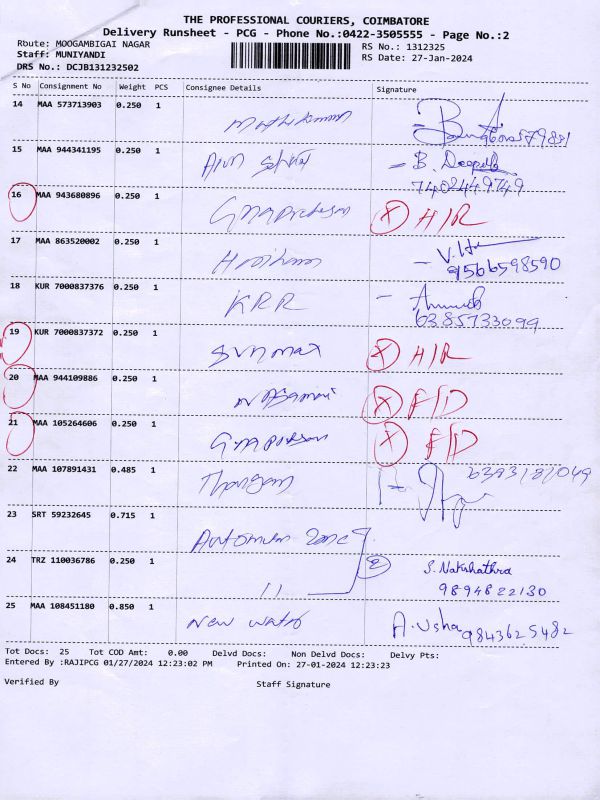 THE PROFESSIONAL COURIERS, COIMBATORE
Delivery Runsheet - PCG - Phone No.:0422-3505555 - Page No.:2
Route: MOOGAMBIGAI NAGAR RS No.: 1312325
Staff: MUNIYANDI RS Date: 27-Jan-2024
DRS No.: DCJB131232502
S No Consignment No Weight PCS Consignee Details Signature
14 MAA 573713903 0.250 1
15 MAA 944341195 0.250 1 Arun B. Deepak
7402449749
16 MAA 943680896 0.250 1 X H/R
17 MAA 863520002 0.250 1 9566598590
18 KUR 7000837376 0.250 1 KRR
6385733099
19 KUR 7000837372 0.250 1 X H/R
20 MAA 944109886 0.250 1 X F/D
21 MAA 105264606 0.250 1 X F/D
22 MAA 107891431 0.485 1
23 SRT 59232645 0.715 1
24 TRZ 110036786 0.250 1 11 2 S. Nakshathra
9894622130
25 MAA 108451180 0.850 1 New A. Usha 9843625482
Tot Docs: 25 Tot COD Amt: 0.00 Delvd Docs: Non Delvd Docs: Delvy Pts:
Entered By :RAJIPCG 01/27/2024 12:23:02 PM Printed On: 27-01-2024 12:23:23
Verified By Staff Signature